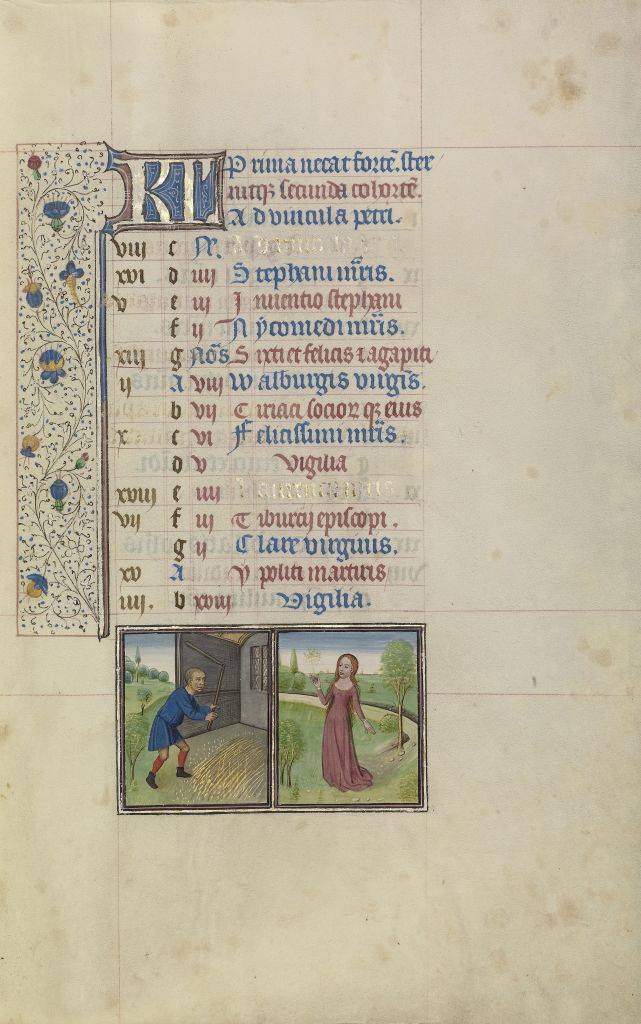 KL Prima necat fortē. ster
nitqꝫ secunda cohortē.
Ad vincula petri.
viii c N.
xvi d iiii Stephani mr̄is.
v e iii Inuentio stephani
f ii Nycomedi mr̄is.
xiii g Nōs Sixti et felicis ⁊ agapiti
ii A viii Walburgis virgīs.
b vii Ciriaci socior̄ qꝫ eius
x c vi Felicissimi mr̄is.
d v Vigilia
xviii e iiii Laurentii
vii f iii Tiburcij episcopi.
g ii Clare virginis.
xv A Ypoliti martiris
iiii. b xviiii Vigilia.